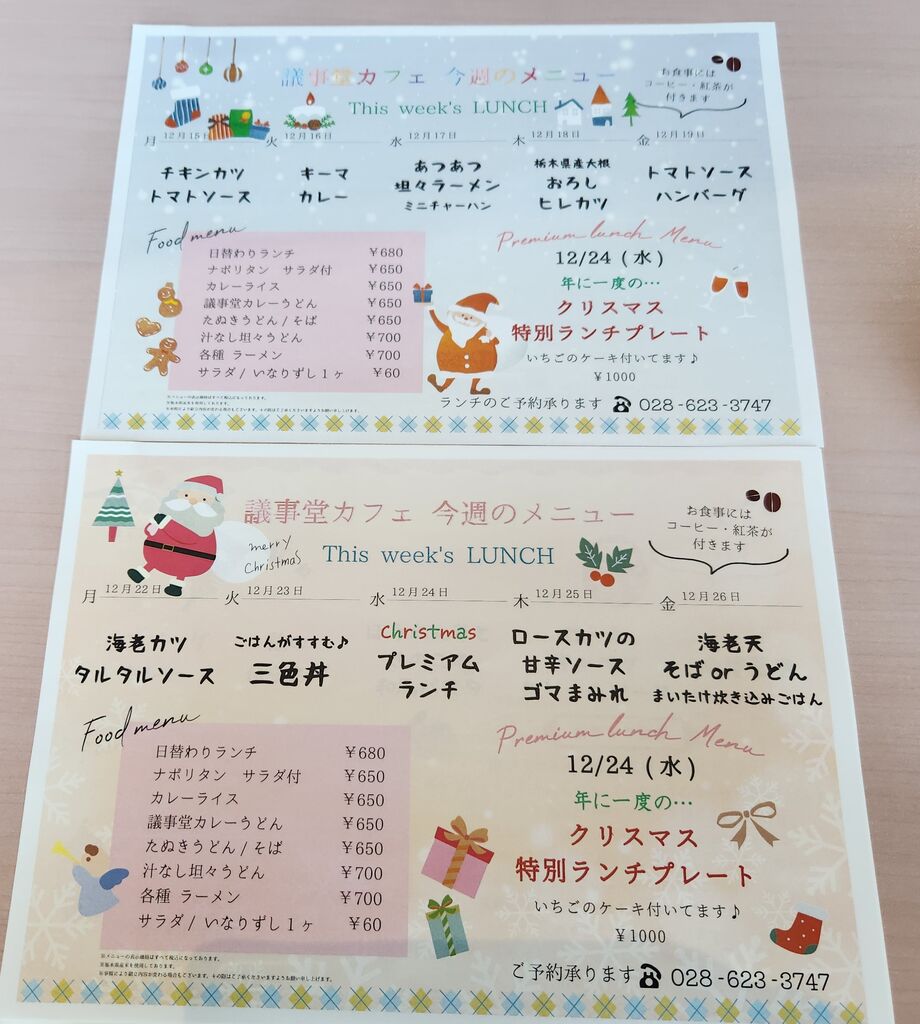 議事堂カフェ 今週のメニュー
This week's LUNCH
お食事には
コーヒー・紅茶が
付きます
月 12月15日 火 12月16日 水 12月17日 木 12月18日 金 12月19日
チキンカツ
トマトソース
キーマ
カレー
あつあつ
坦々ラーメン
ミニチャーハン
栃木県産大根
おろし
ヒレカツ
トマトソース
ハンバーグ
Food menu
日替わりランチ ¥680
ナポリタン サラダ付 ¥650
カレーライス ¥650
議事堂カレーうどん ¥650
たぬきうどん/そば ¥650
汁なし坦々うどん ¥700
各種 ラーメン ¥700
サラダ/いなりずし1ヶ ¥60
Premium lunch Menu
12/24 (水)
年に一度の…
クリスマス
特別ランチプレート
いちごのケーキ付いてます♪
¥1000
ランチのご予約承ります ☎ 028-623-3747
議事堂カフェ 今週のメニュー
merry
Christmas
This week's LUNCH
お食事には
コーヒー・紅茶が
付きます
月 12月22日 火 12月23日 水 12月24日 木 12月25日 金 12月26日
海老カツ
タルタルソース
ごはんがすすむ♪
三色丼
Christmas
プレミアム
ランチ
ロースカツの
甘辛ソース
ゴマまみれ
海老天
そば or うどん
まいたけ炊き込みごはん
Food menu
日替わりランチ ¥680
ナポリタン サラダ付 ¥650
カレーライス ¥650
議事堂カレーうどん ¥650
たぬきうどん/そば ¥650
汁なし坦々うどん ¥700
各種 ラーメン ¥700
サラダ/いなりずし1ヶ ¥60
Premium lunch Menu
12/24 (水)
年に一度の…
クリスマス
特別ランチプレート
いちごのケーキ付いてます♪
¥1000
※メニューの表示価格はすべて税込になっております。
※栃木県産米を使用しております。
ご予約承ります ☎ 028-623-3747